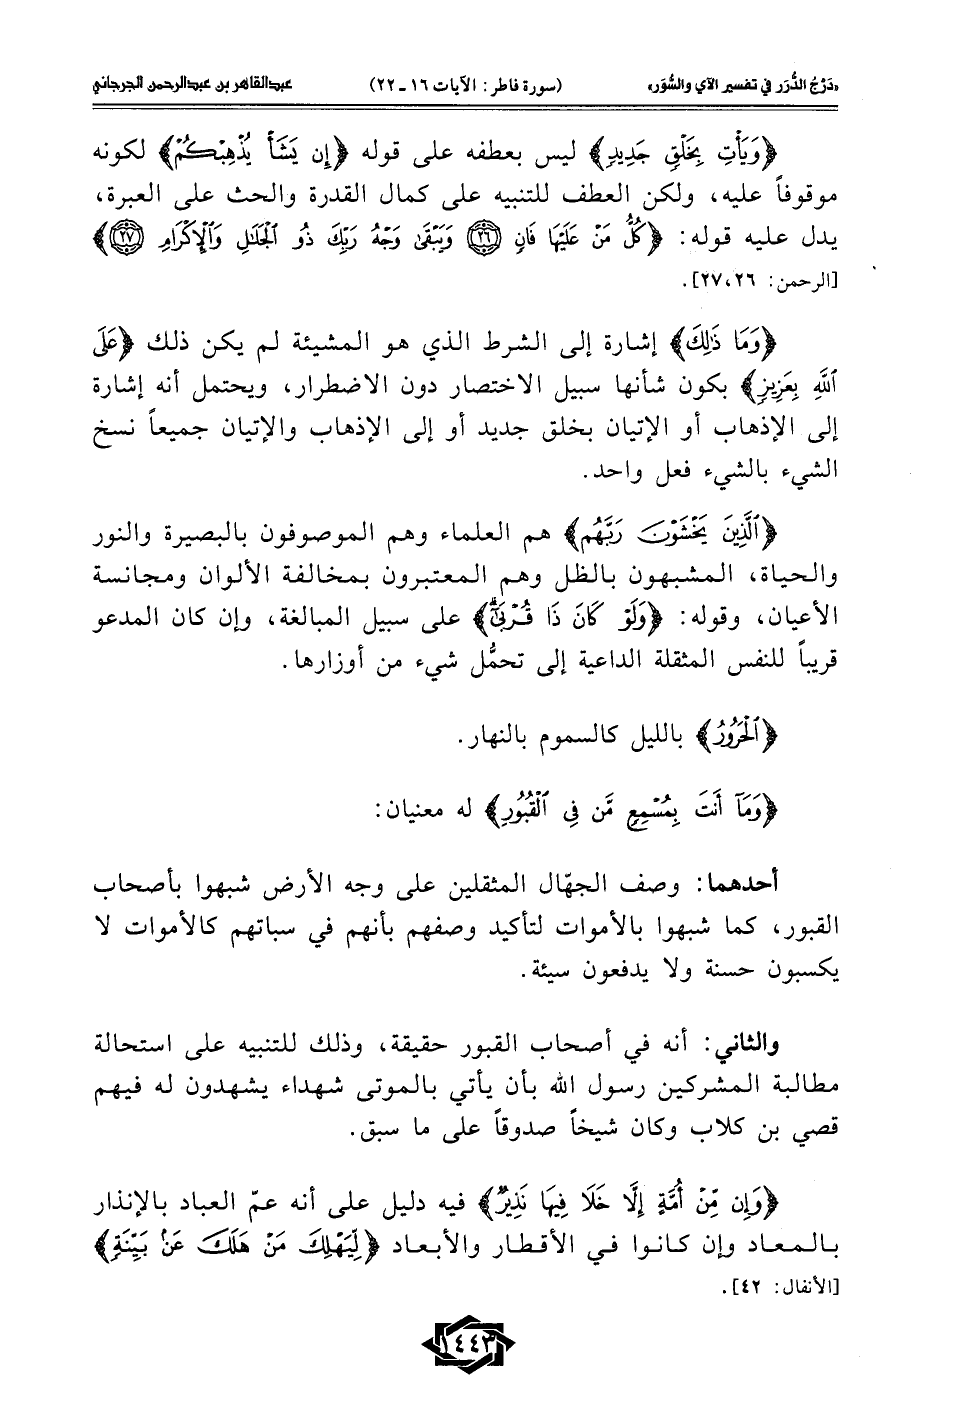 «دَرْجُ الدُّرَر في تفسير الآي والسُّوَر» (سورة فاطر: الآيات ١٦ ـ ٢٢) عبدالقاهر بن عبدالرحمن الجرجاني
﴿وَيَأْتِ بِخَلْقٍ جَدِيدٍ﴾ ليس بعطفه على قوله ﴿إِن يَشَأْ يُذْهِبْكُمْ﴾ لكونه
موقوفاً عليه، ولكن العطف للتنبيه على كمال القدرة والحث على العبرة،
يدل عليه قوله: ﴿كُلُّ مَنْ عَلَيْهَا فَانٍ ٢٦ وَيَبْقَىٰ وَجْهُ رَبِّكَ ذُو ٱلْجَلَـٰلِ وَٱلْإِكْرَامِ ٢٧﴾
[الرحمن: ٢٦، ٢٧].
﴿وَمَا ذَٰلِكَ﴾ إشارة إلى الشرط الذي هو المشيئة لم يكن ذلك ﴿عَلَى
ٱللَّهِ بِعَزِيزٍ﴾ بكون شأنها سبيل الاختصار دون الاضطرار، ويحتمل أنه إشارة
إلى الإذهاب أو الإتيان بخلق جديد أو إلى الإذهاب والإتيان جميعاً نسخ
الشيء بالشيء فعل واحد.
﴿ٱلَّذِينَ يَخْشَوْنَ رَبَّهُم﴾ هم العلماء وهم الموصوفون بالبصيرة والنور
والحياة، المشبهون بالظل وهم المعتبرون بمخالفة الألوان ومجانسة
الأعيان، وقوله: ﴿وَلَوْ كَانَ ذَا قُرْبَىٰٓ﴾ على سبيل المبالغة، وإن كان المدعو
قريباً للنفس المثقلة الداعية إلى تحمُّل شيء من أوزارها.
﴿ٱلْحَرُورُ﴾ بالليل كالسموم بالنهار.
﴿وَمَآ أَنتَ بِمُسْمِعٍ مَّن فِى ٱلْقُبُورِ﴾ له معنيان:
أحدهما: وصف الجهّال المثقلين على وجه الأرض شبهوا بأصحاب
القبور، كما شبهوا بالأموات لتأكيد وصفهم بأنهم في سباتهم كالأموات لا
يكسبون حسنة ولا يدفعون سيئة.
والثاني: أنه في أصحاب القبور حقيقة، وذلك للتنبيه على استحالة
مطالبة المشركين رسول الله بأن يأتي بالموتى شهداء يشهدون له فيهم
قصي بن كلاب وكان شيخاً صدوقاً على ما سبق.
﴿وَإِن مِّنْ أُمَّةٍ إِلَّا خَلَا فِيهَا نَذِيرٌ﴾ فيه دليل على أنه عمّ العباد بالإنذار
بالمعاد وإن كانوا في الأقطار والأبعاد ﴿لِّيَهْلِكَ مَنْ هَلَكَ عَنۢ بَيِّنَةٍ﴾
[الأنفال: ٤٢].
١٤٤٣